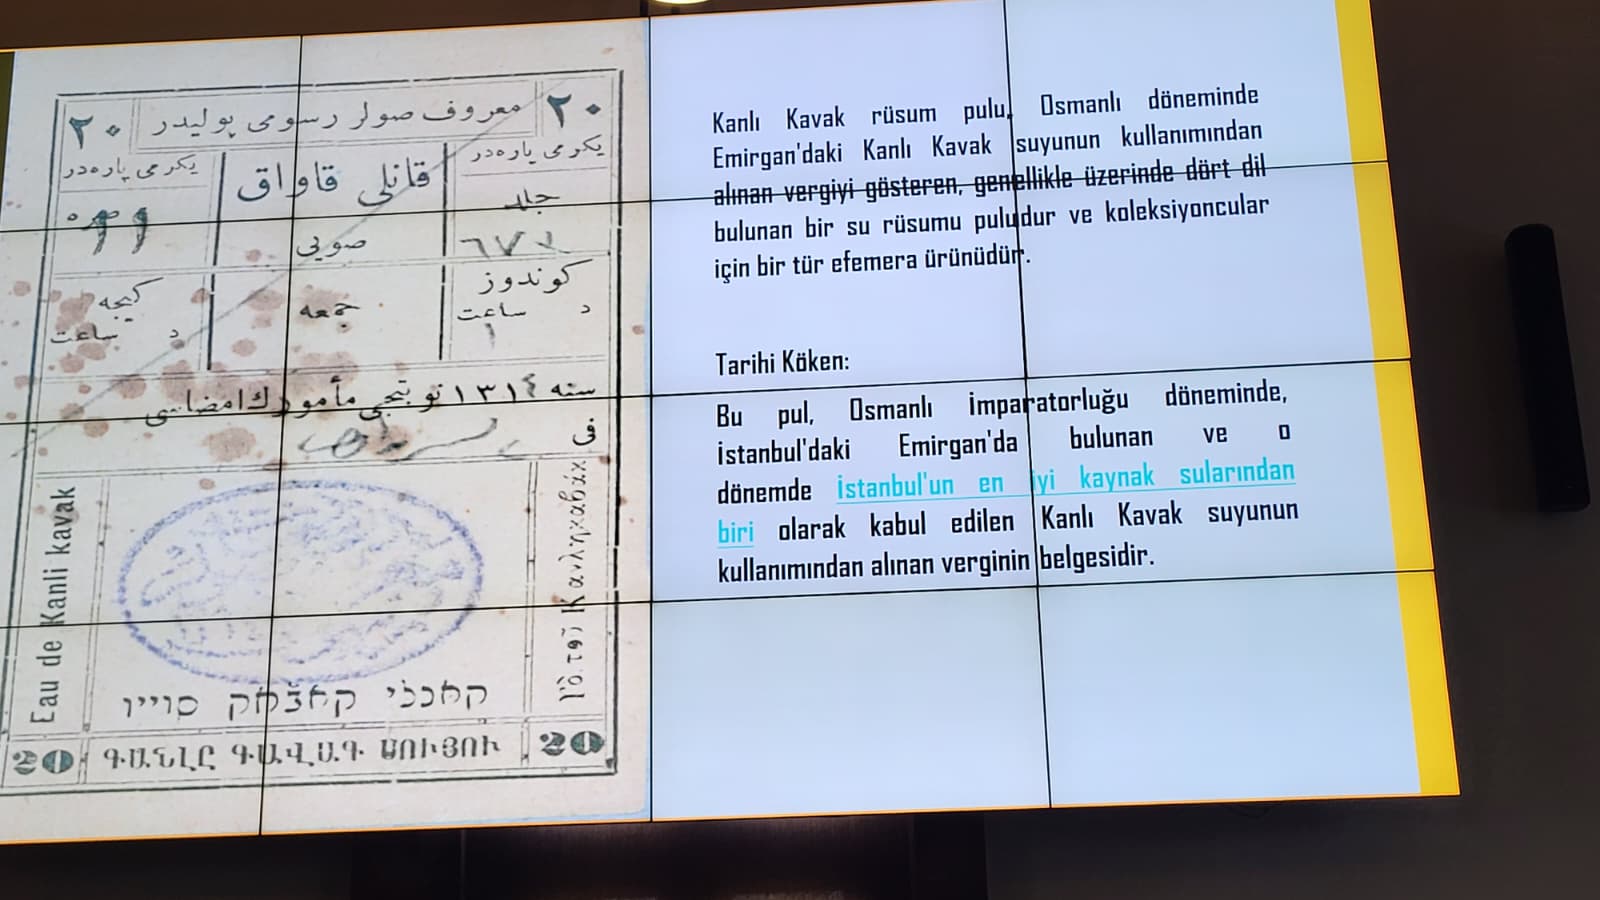 ٢٠ معروف صولر رسومی پولیدر ٢٠
یكرمی پاره‌در
یكرمی پاره‌در
قانلی قاواق
صویی
جلد
كوندوز
ساعت ١
د
جمعه
كیجه
ساعت
د
سنه ١٣١٤ نوبتجی مأمورك امضاسی
فی
Eau de Kanli kavak
Τὸ τοῦ Κανληκαβάκ
קאנלי קאבאק סוייו
20 ԳԱՆԼԸ ԳԱՎԱԳ ՍՈՒՅՈՒ 20
Kanlı Kavak rüsum pulu, Osmanlı döneminde
Emirgan'daki Kanlı Kavak suyunun kullanımından
alınan vergiyi gösteren, genellikle üzerinde dört dil
bulunan bir su rüsumu puludur ve koleksiyoncular
için bir tür efemera ürünüdür.
Tarihi Köken:
Bu pul, Osmanlı İmparatorluğu döneminde,
İstanbul'daki Emirgan'da bulunan ve o
dönemde İstanbul'un en iyi kaynak sularından
biri olarak kabul edilen Kanlı Kavak suyunun
kullanımından alınan verginin belgesidir.